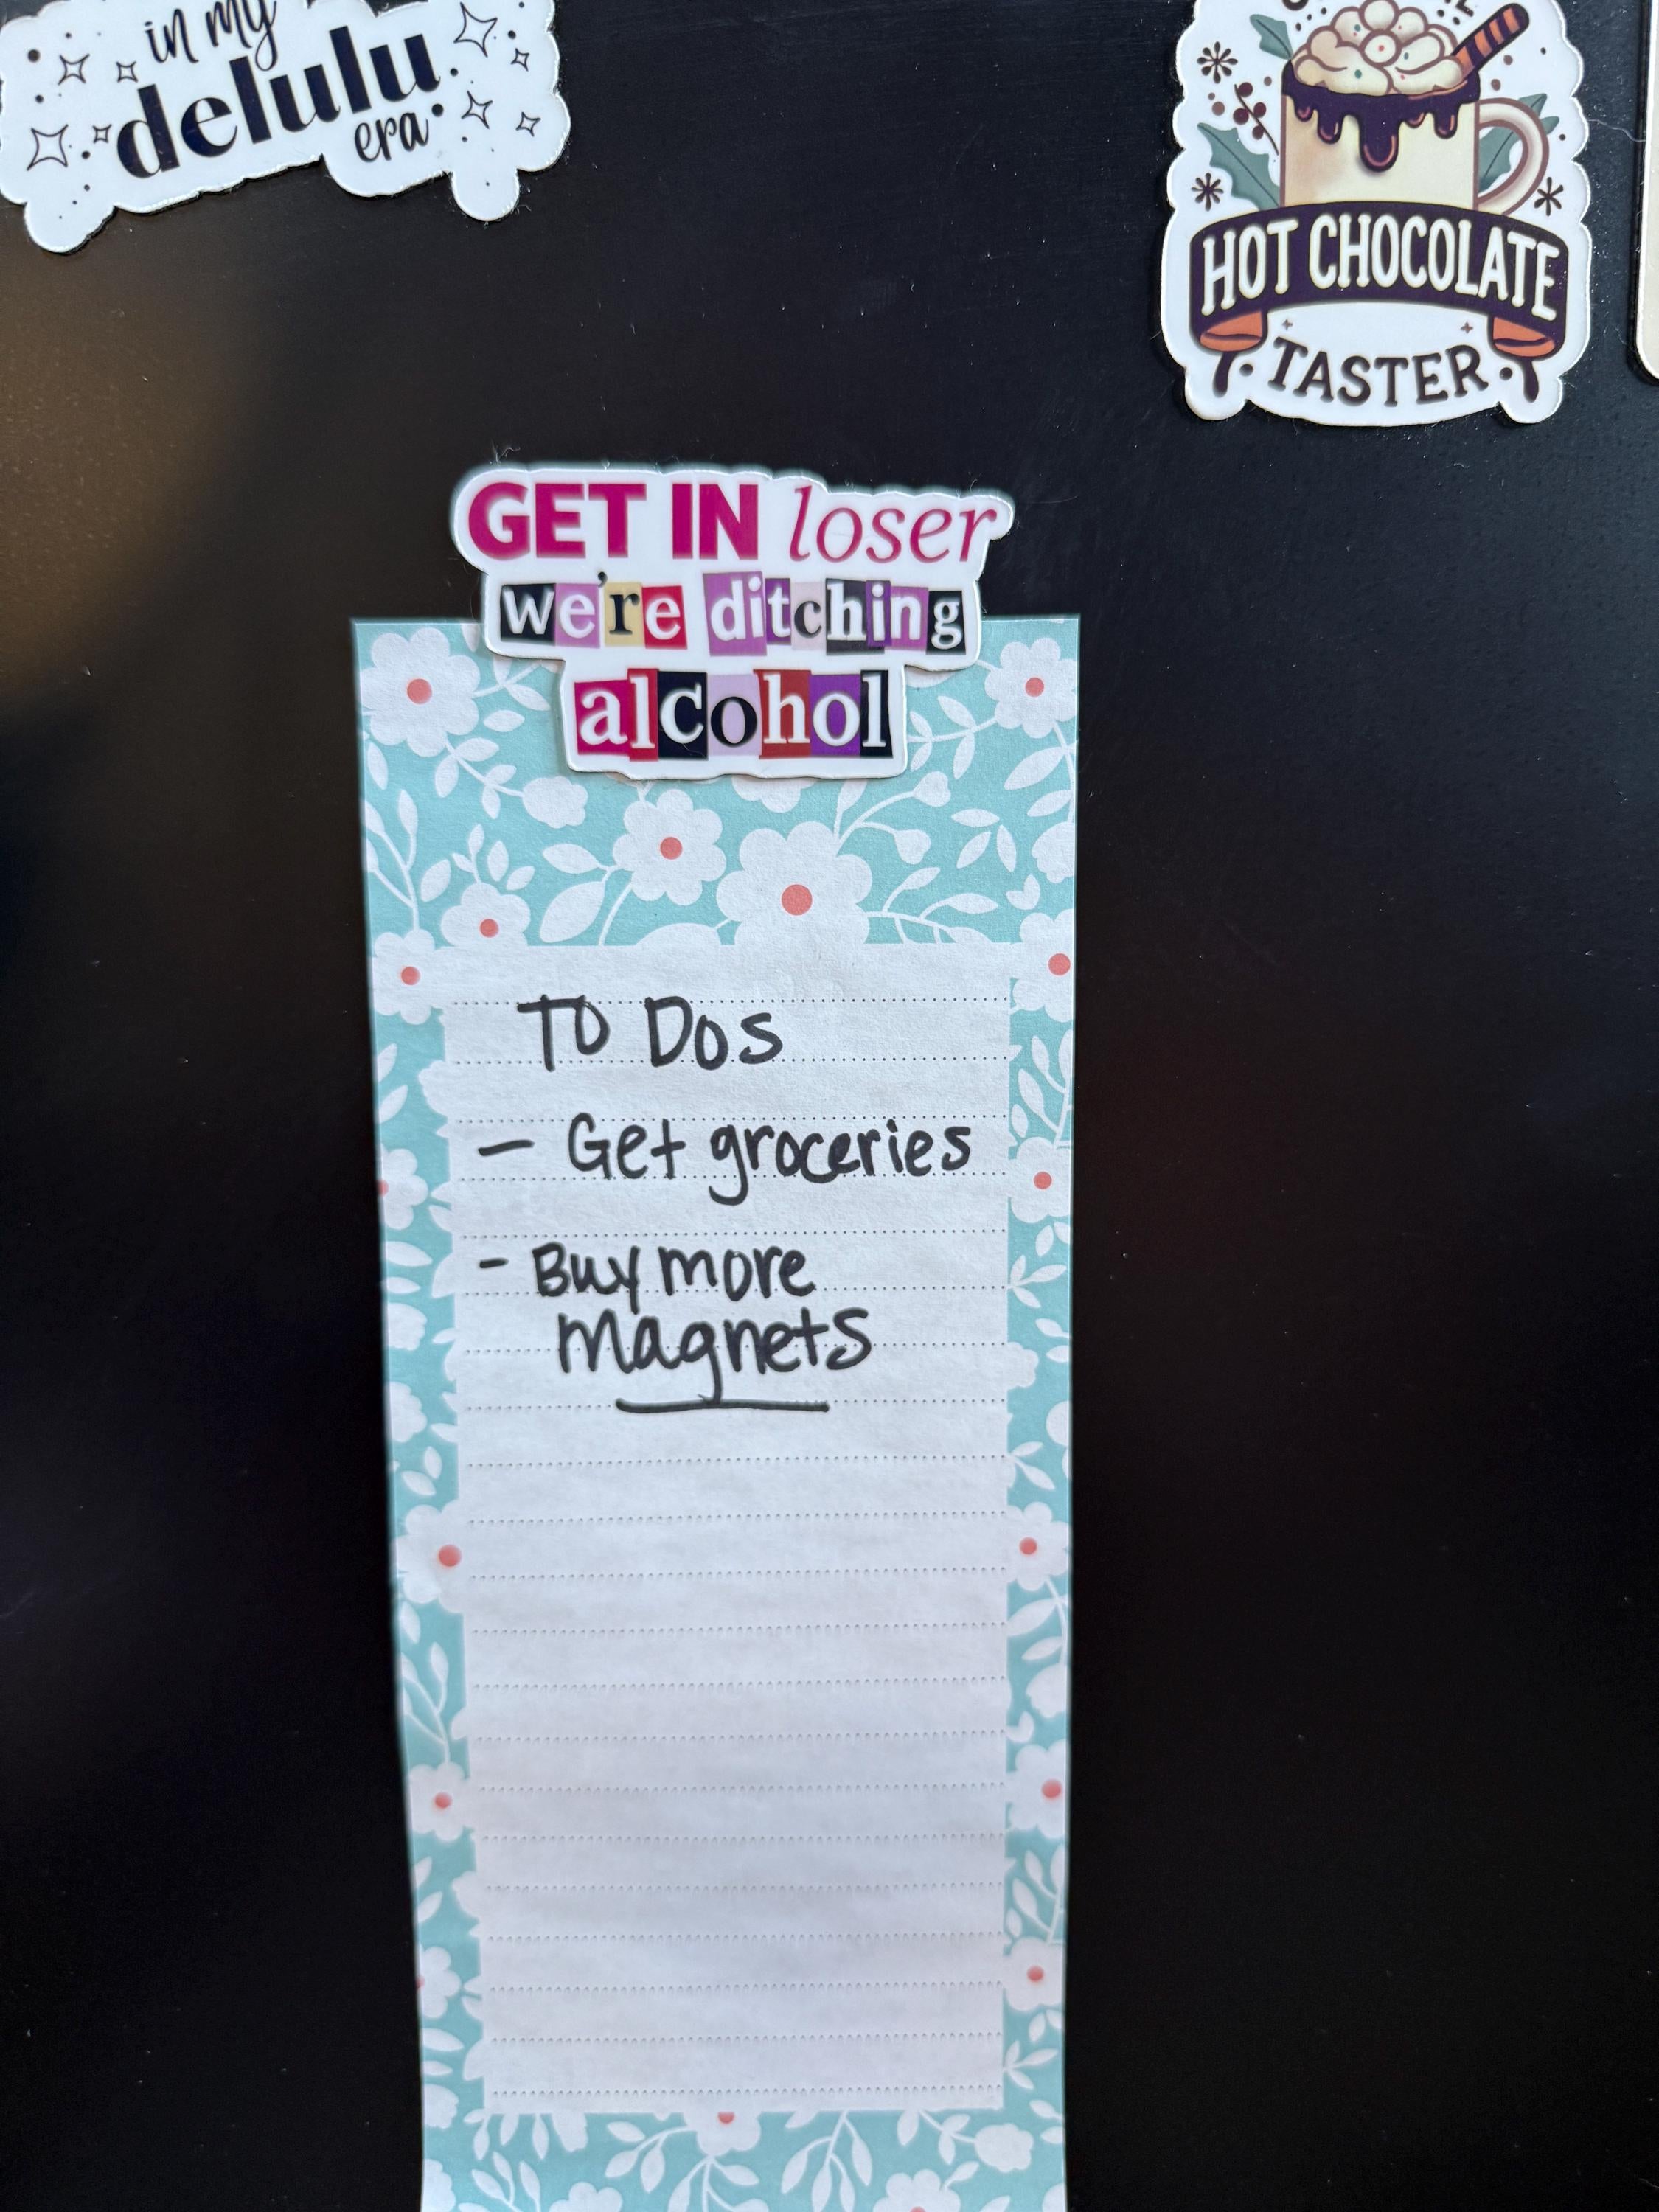 in my
delulu
era
HOT CHOCOLATE
TASTER
GET IN loser
we're ditching
alcohol
TO DOS
- Get groceries
- Buy more
magnets